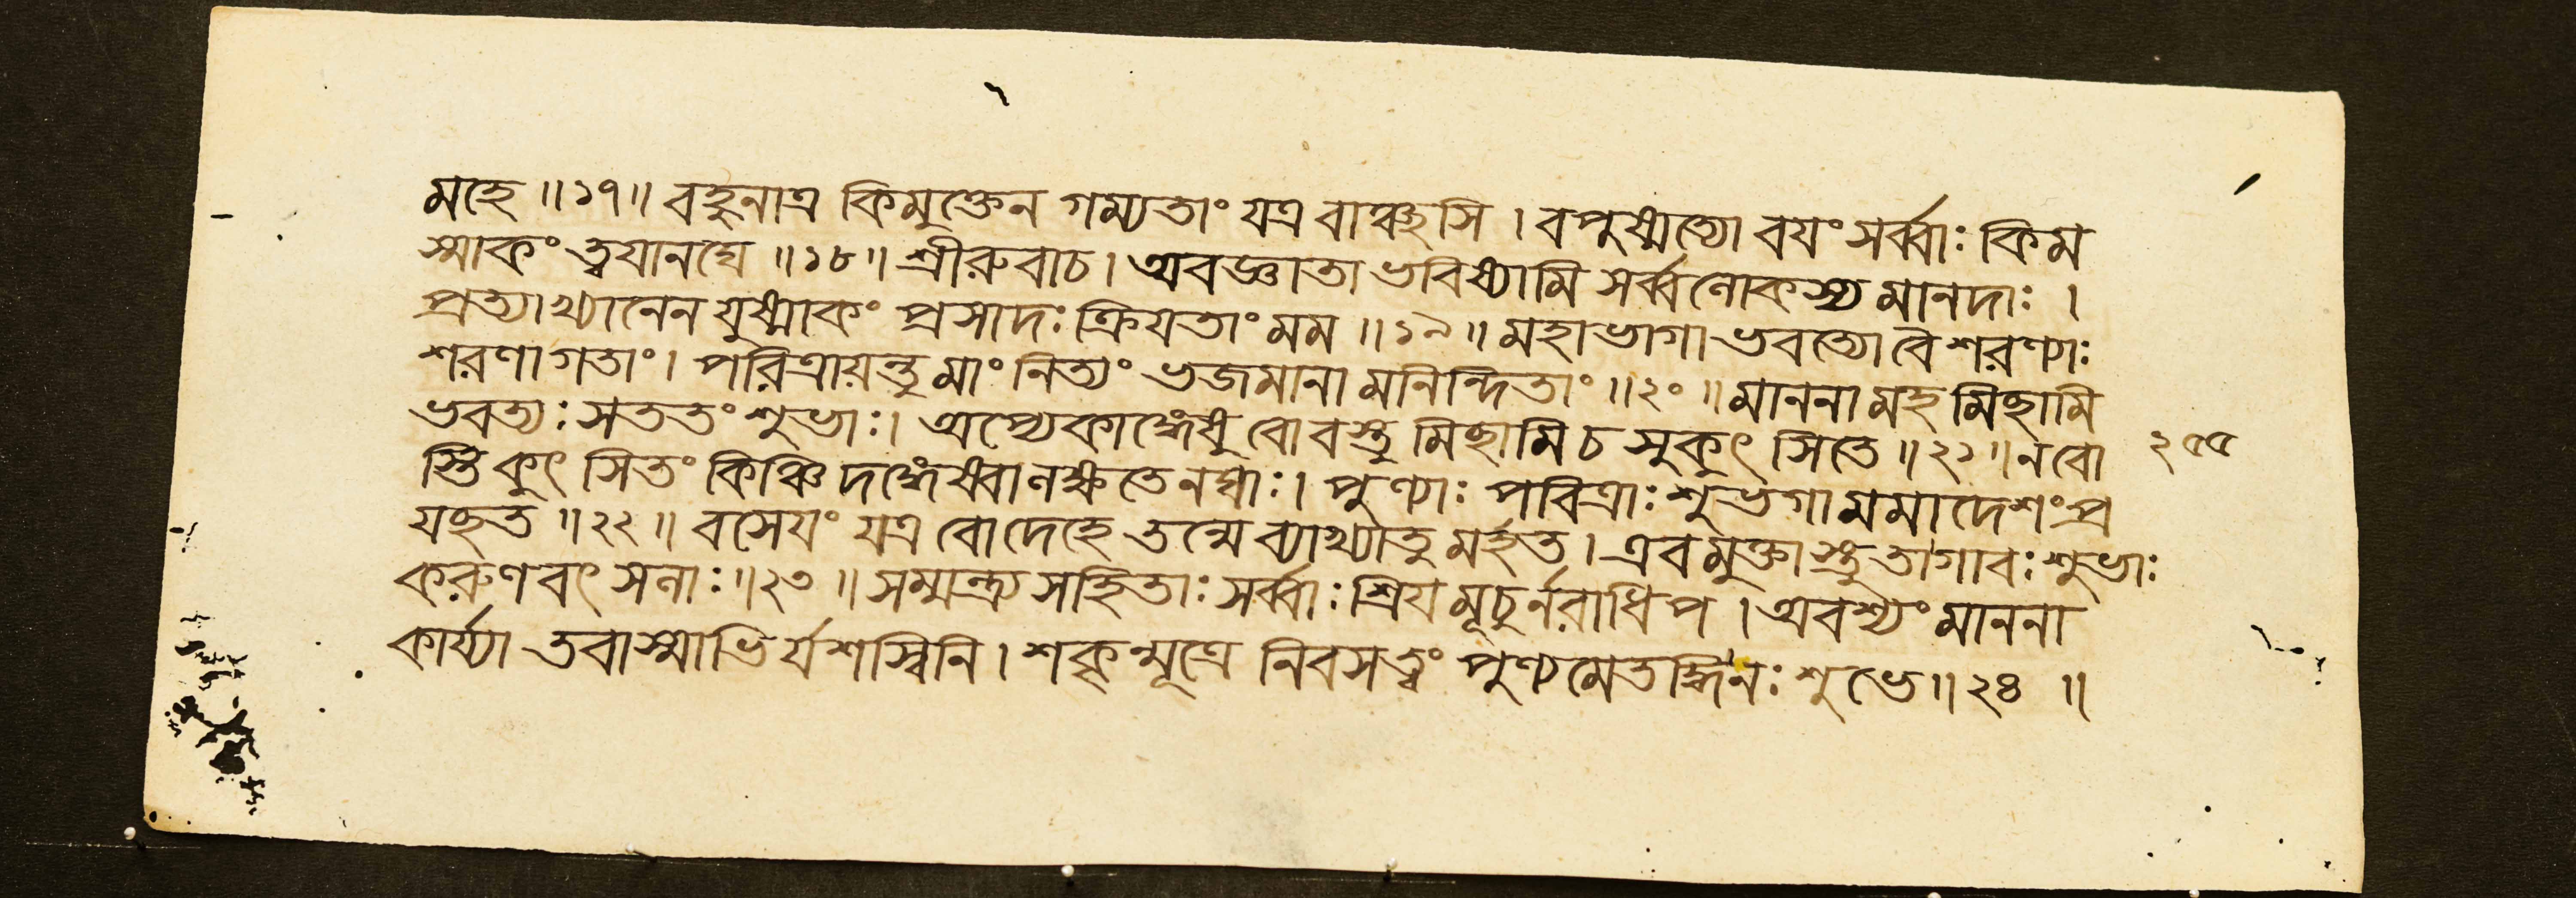 মহে ॥১৭॥ বহুনাত্র কিমুক্তেন গম্যতাং যত্র বাঞ্ছসি । বপুষ্মত্যো বযং সর্ব্বাঃ কিম
স্মাকং ত্বযানঘে ॥১৮॥ শ্রীরুবাচ । অবজ্ঞাতা ভবিষ্যামি সর্ব্বলোকস্য মানদাঃ ।
প্রত্যাখ্যানেন যুষ্মাকং প্রসাদঃ ক্রিযতাং মম ॥১৯॥ মহাভাগা ভবত্যো বৈ শরণ্যাঃ
শরণাগতাং । পরিত্রায়ন্তু মাং নিত্যং ভজমানামনিন্দিতাং ॥২০॥ মাননামহমিচ্ছামি
ভবত্যঃ সততং শুভাঃ । অপ্যেকাঙ্গেষু বো বস্তুমিচ্ছামি চ সুকুৎসিতে ॥২১॥ ন বো
স্তি কুৎসিতং কিঞ্চিদঙ্গেষ্বালক্ষ্যতেনঘাঃ । পুণ্যাঃ পবিত্রাঃ শুভগা মমাদেশং প্র
যচ্ছত ॥২২॥ বসেযং যত্র বো দেহে তন্মে ব্যাখ্যাতুমর্হত । এবমুক্তাস্তু তা গাবঃ শুভাঃ
করুণবৎসলাঃ ॥২৩॥ সম্মন্ত্র্য সহিতাঃ সর্ব্বাঃ শ্রিযমূচুর্নরাধিপ । অবশ্যং মাননা
কার্য্যা তবাস্মাভির্যশস্বিনি । শকৃন্মূত্রে নিবসত্বং পুণ্যমেতদ্ধি নঃ শুভে ॥২৪॥
২৫৫